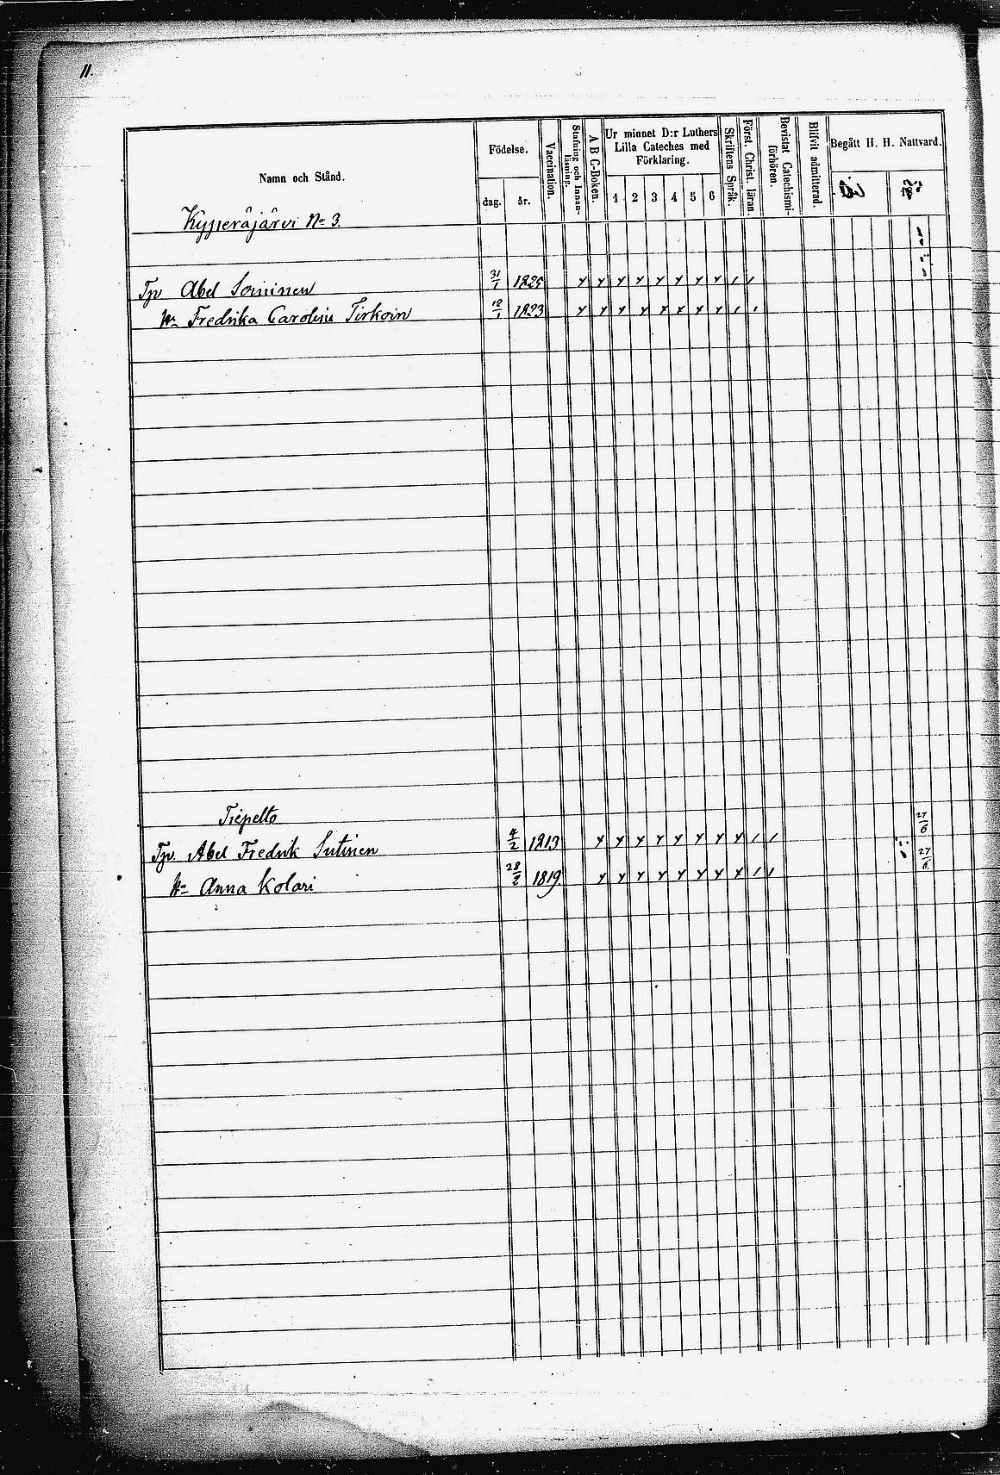 11.
Namn och Stånd.
Födelse.
dag.
år.
Vaccination.
Stafning och Innan-
läsning.
A B C-Boken.
Ur minnet D:r Luthers
Lilla Cateches med
Förklaring.
1 2 3 4 5 6
Skriftens Språk.
Först. Christ. läran.
Bevistat Catechismi-
förhören.
Blifvit admitterad.
Begått H. H. Nattvard.
Kyyneräjärvi No 3.
Tjv Abel Sominen 31/1 1825
Hu Fredrika Carolina Tirkoin 12/1 1823
Tiepelto
Tjv. Abel Fredrik Sutinen 4/2 1813 27/6
Hu Anna Kolari 28/2 1819 27/6